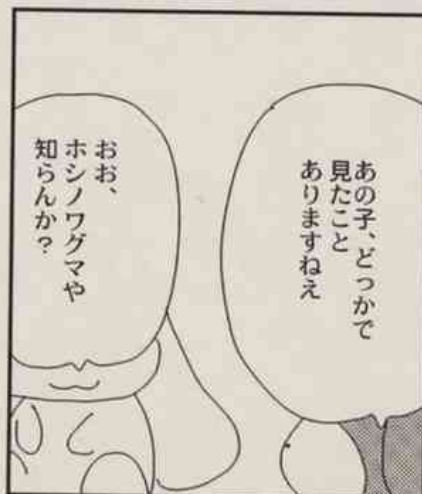 あの子、どっかで
見たこと
ありますねえ
おお、
ホシノワグマや
知らんか？